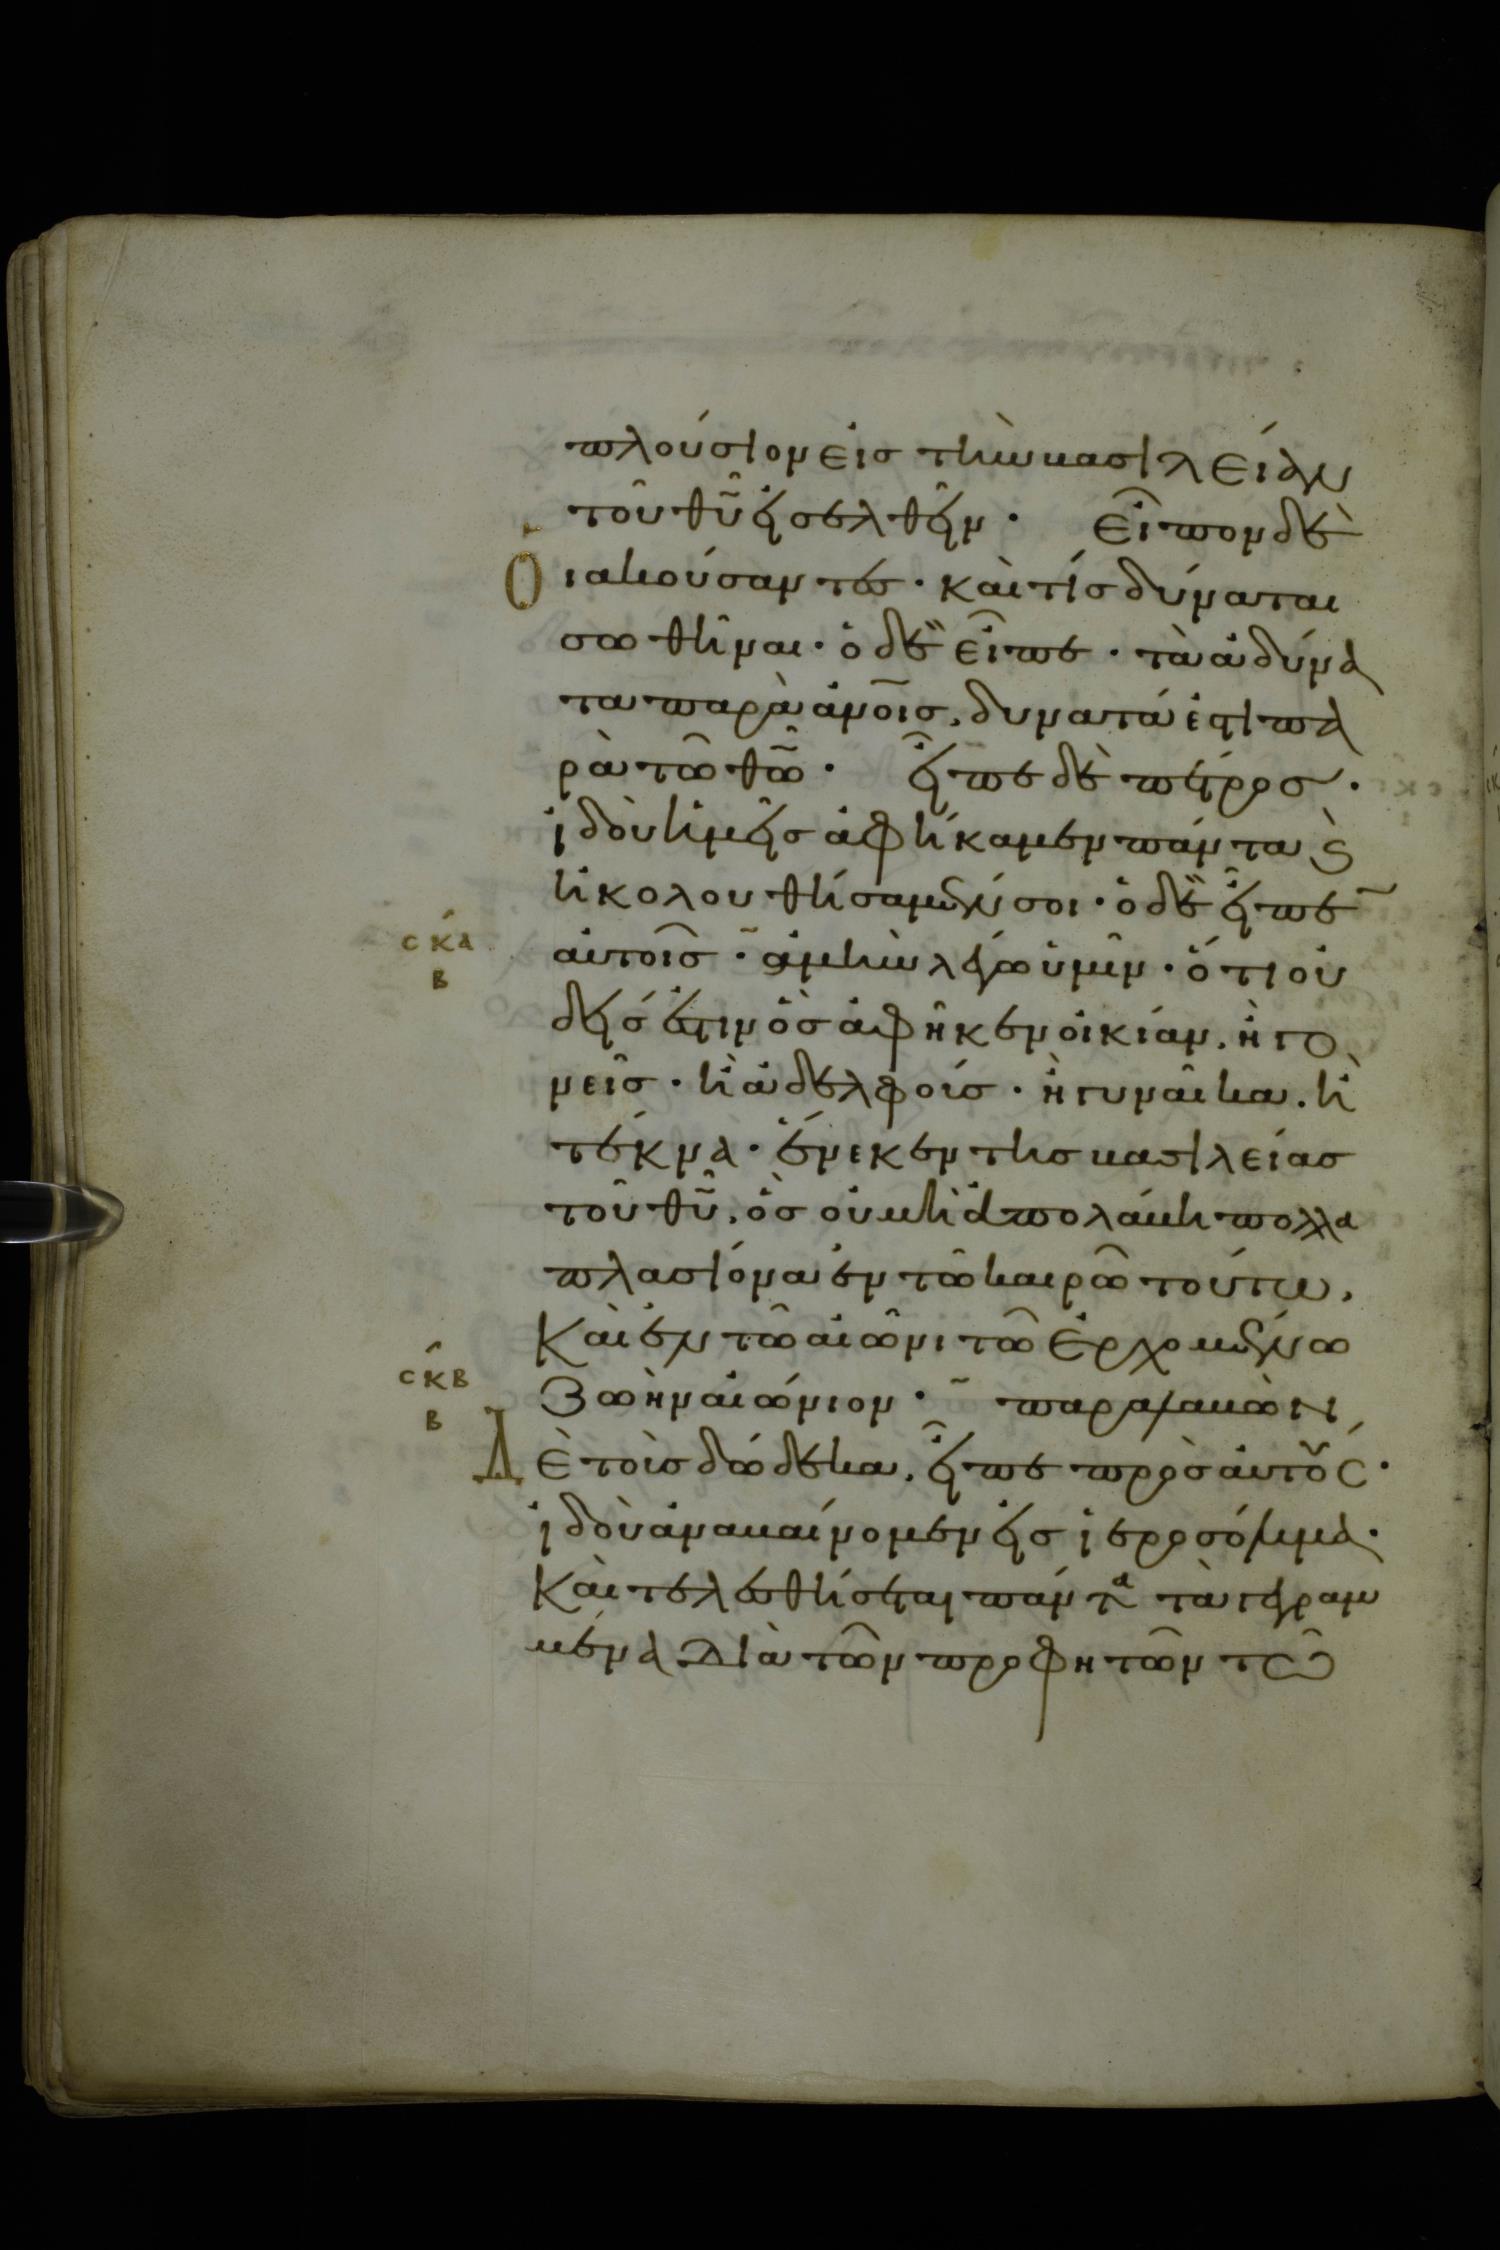 πλούσιον εἰς τὴν βασιλείαν
τοῦ θῦ εἰσελθεῖν · εἶπον δὲ
Ὁι ἀκούσαντες · καὶ τίς δύναται
σωθῆναι · ὁ δὲ εἶπε · τὰ ἀδύνα
τα παρὰ ἀνοις, δυνατά ἐστι πα
ρὰ τῶ θῶ · εἶπε δὲ πέτρος ·
ἰδοὺ ἡμεῖς ἀφήκαμεν πάντα ϛ
ἠκολουθήσαμέν σοι · ὁ δὲ εἶπε
σκα αὐτοῖς · ἀμὴν λέγω ὑμῖν · ὅτι οὐ
β
δείς ἐστιν ὃς ἀφῆκεν οἰκίαν, ἢ γο
νεῖς · ἢ ἀδελφούς · ἢ γυναῖκα, ἢ
τέκνα · ἕνεκεν τῆς βασιλείας
τοῦ θῦ, ὃς οὐ μὴ ἀπολάβη πολλα
πλασίονα ἐν τῶ καιρῶ τούτω,
καὶ ἐν τῶ αἰῶνι τῶ ἐρχομένω
σκβ ζωὴν αἰώνιον · παραλαβὼν
β
Δὲ τοὺς δώδεκα, εἶπε πρὸς αὐτούς ·
ἰδοὺ ἀναβαίνομεν εἰς ἱεροσόλυμα ·
καὶ τελεσθήσεται πάντα τὰ γεγραμ
μένα διὰ τῶν προφητῶν τῶ